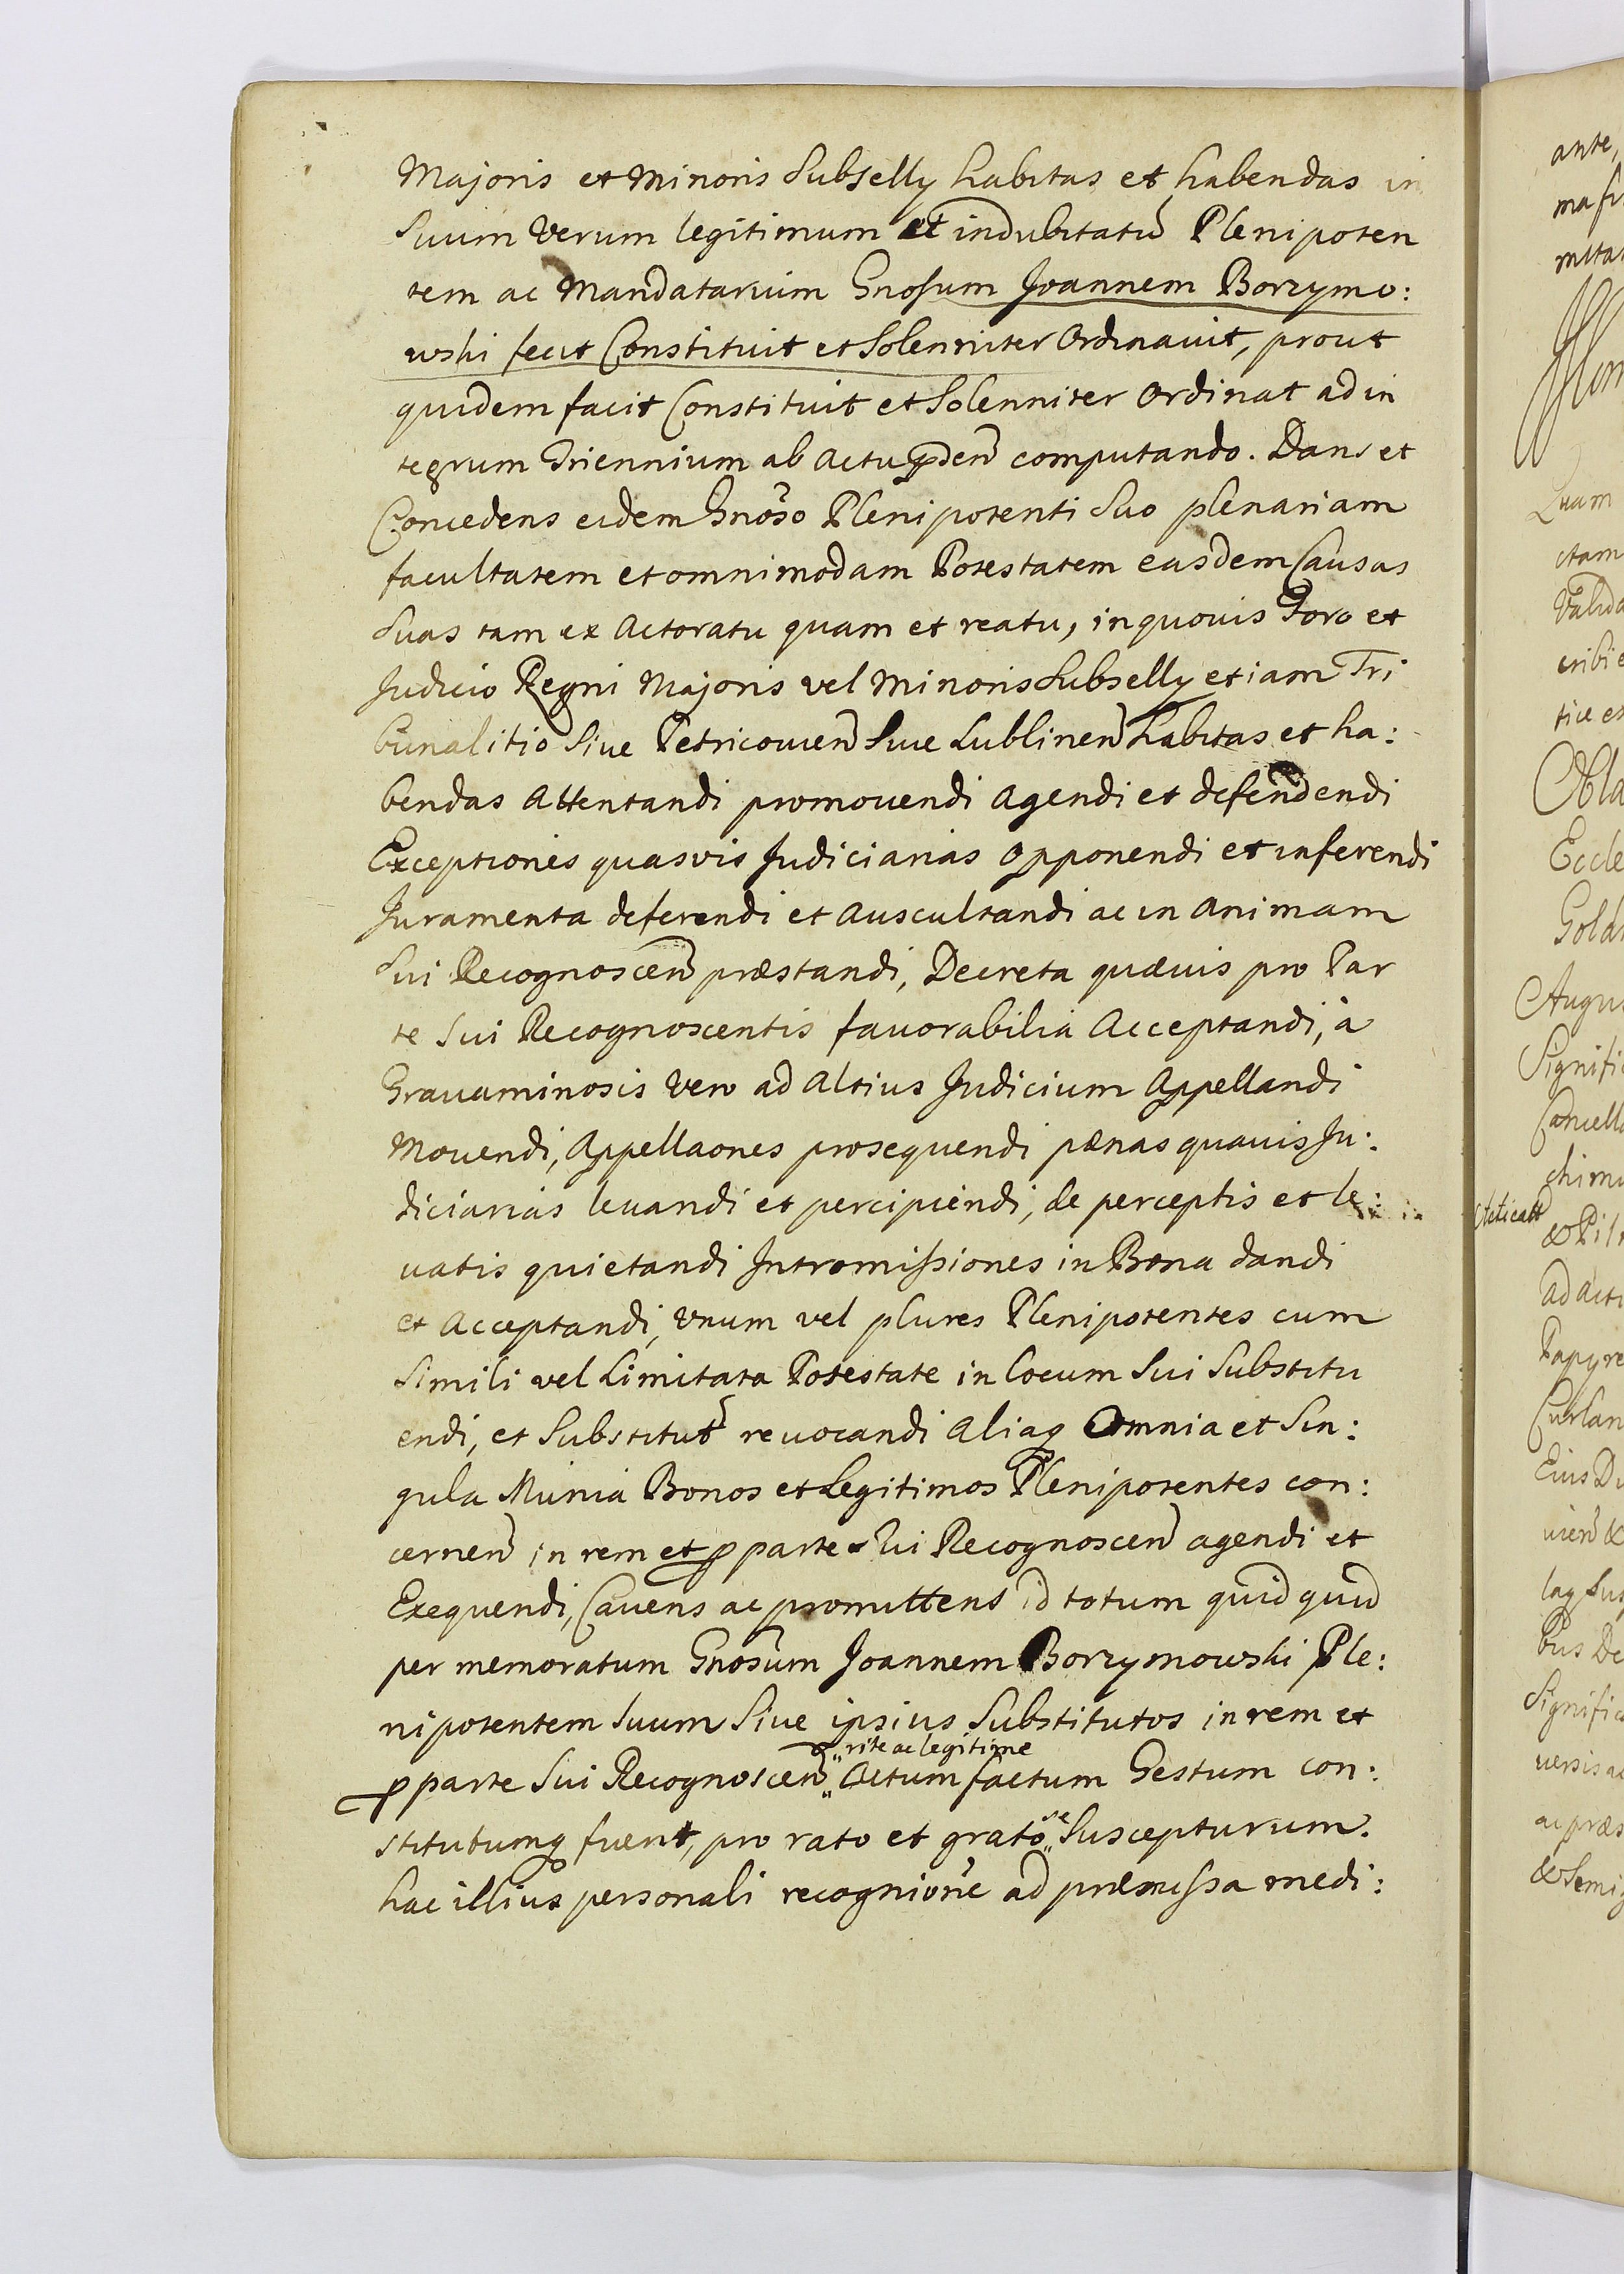 Majoris et Minoris Subselly habitas et habendas in
Suum Verum legitimum et indubitatũ Plenipoten
tem ac Mandatarium Gnosum Joannem Borzymo:
wski fecit Constituit et Solenniter Ordinavit, prout
quidem facit Constituit et Solenniter Ordinat ad in
tegrum Triennium ab Actu pñden̄ computando. Dans et
Concedens eidem Gnõso Plenipotenti Suo plenariam
facultatem et omnimodam Potestatem easdem Causas
Suas tam ex Actoratu quam et reatu, in quovis Foro et
Judicio Regni Majoris vel Minoris Subselly etiam Tri
bunalitio Sive Petricovien̄ Sive Lublinen̄ habitas et ha:
bendas Attentandi promovendi Agendi et defendendi
Exceptiones quasvis Judiciarias opponendi et inferendi
Juramenta deferendi et Auscultandi ac in Animam
Sui Recognoscen̄ præstandi, Decreta quævis pro Par
te Sui Recognoscentis favorabilia Acceptandi, à
Gravaminosis Vero ad Altius Judicium Appellandi
Movendi, Appellaones prosequendi pænas quavis Ju:
diciarias levandi et percipiendi, de perceptis et le:
vatis quietandi Intromissiones in Bona dandi
et Acceptandi, Vnum vel plures Plenipotentes cum
Simili vel Limitata Potestate in Locum Sui Substitu
endi, et Substitut̃ revocandi Aliaq Omnia et Sin:
gula Munia Bonos et Legitimos Plenipotentes con:
cernen̄ in rem et p parte Sui Recognoscen̄ agendi et
Exequendi, Cavens ac promittens id totum quidquid
per memoratum Gnõsum Joannem Borzymowski Ple:
nipotentem Suum Sive ipsius Substitutos in rem et
rite ac legitime
p parte Sui Recognoscen̄ Actum factum Gestum con:
stitutumq fuerit, pro rato et grato se Suscepturum.
hac illius personali recognione ad præmissa medi: